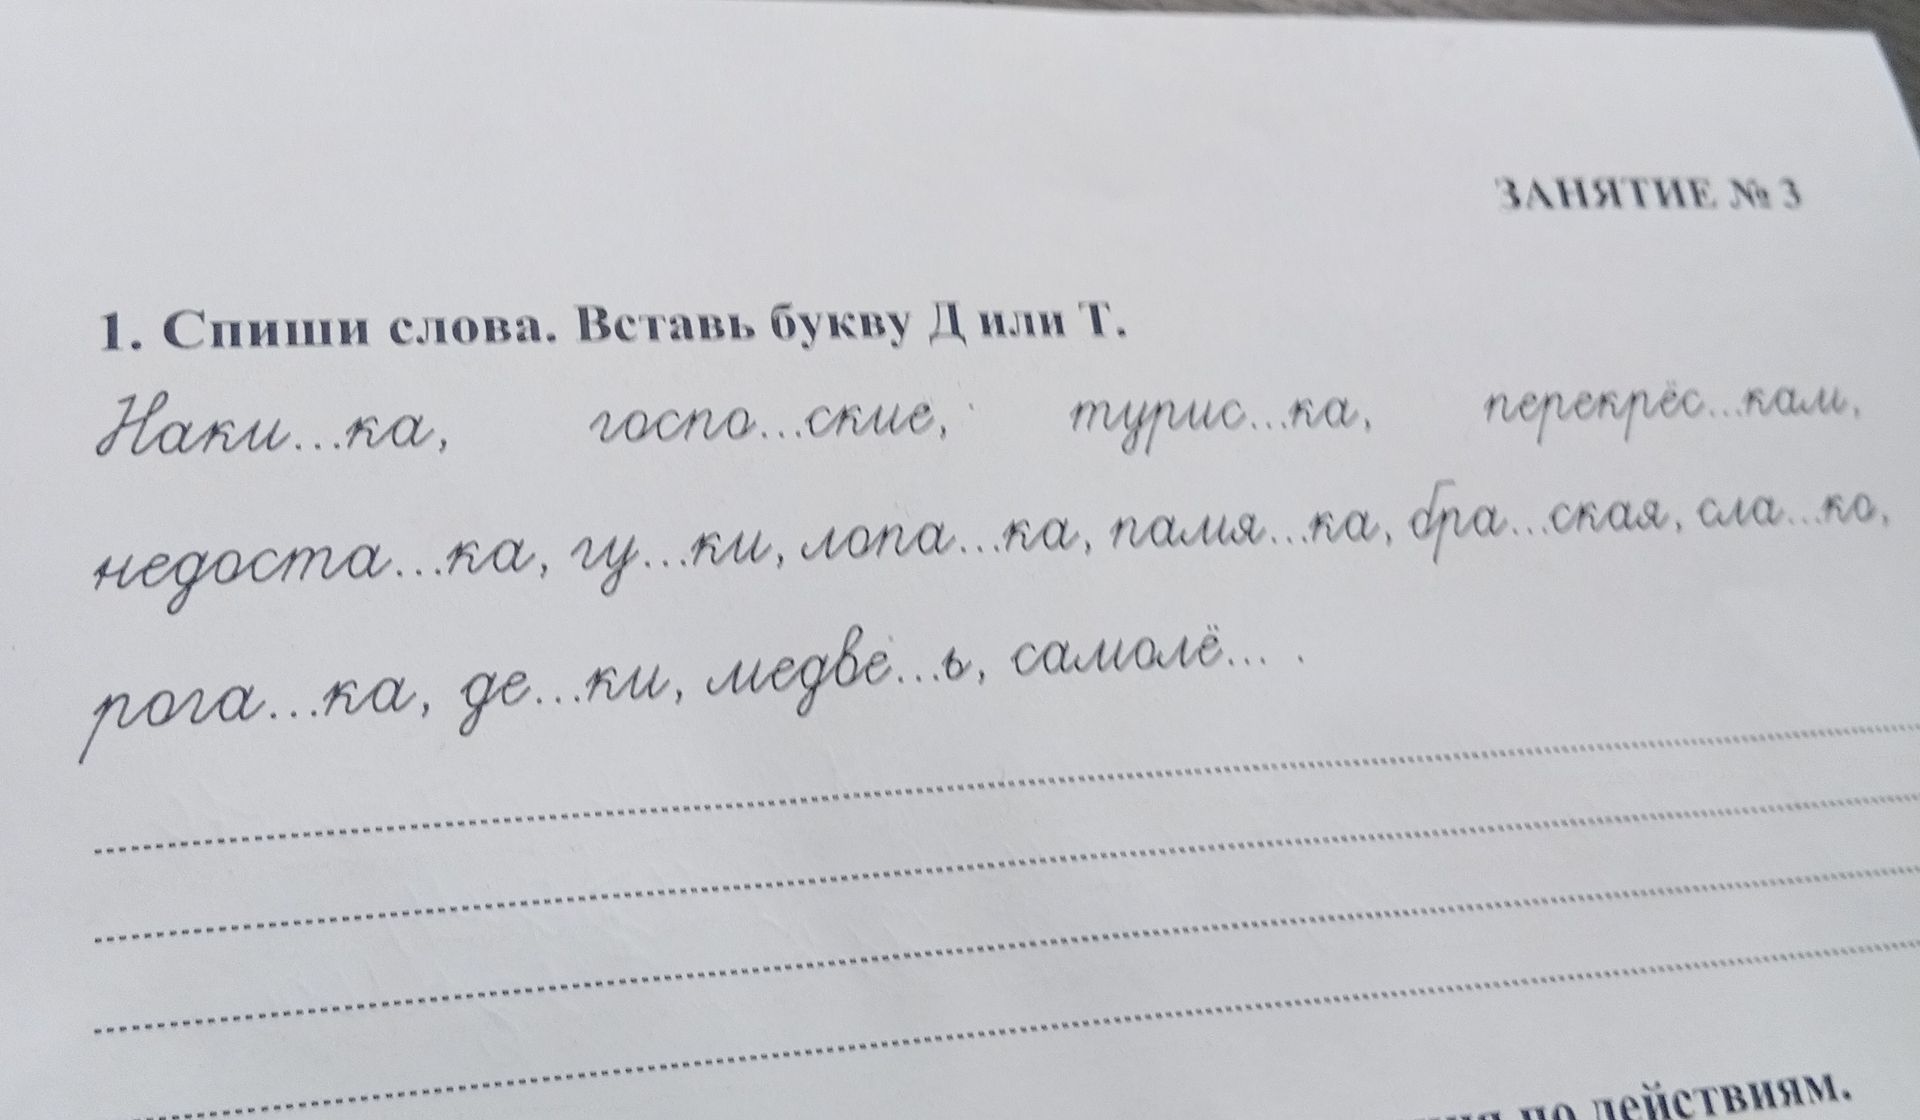 ЗАНЯТИЕ № 3
1. Спиши слова. Вставь букву Д или Т.
Наки...ка, госпо...ские, турис...ка, перекрёс...кам,
недоста...ка, гу...ки, лопа...ка, памя...ка, бра...ская, сла...ко,
рога...ка, де...ки, медве...ь, самолё... .
по действиям.